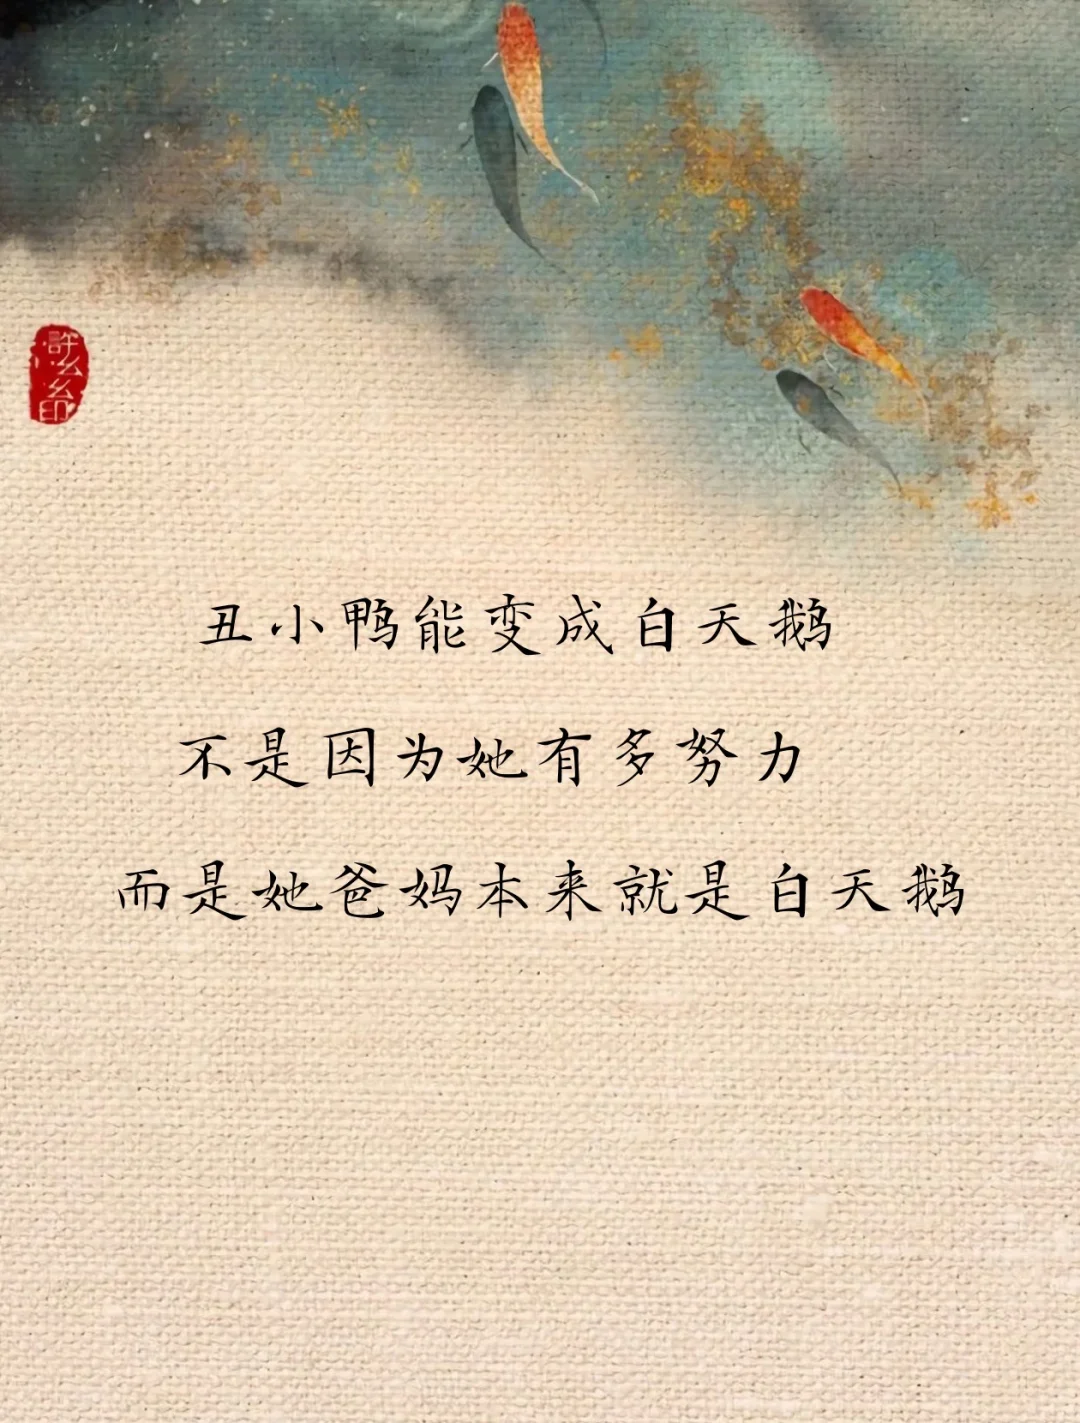 許么么印
丑小鸭能变成白天鹅
不是因为她有多努力
而是她爸妈本来就是白天鹅